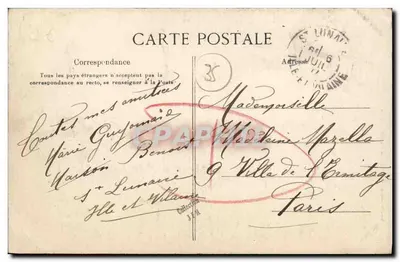 CARTE POSTALE
Correspondance
Tous les pays étrangers n'acceptent pas la
correspondance au recto, se renseigner à la Poste.
35
Toutes mes amitiés
Marie
Maison Benoist
St Lunaire
Ille et Vilaine
Mademoiselle
Madeleine Mazella
9 Villa de l'Ermitage
Paris
ST LUNAIRE
ILLE-ET-VILAINE
Collection